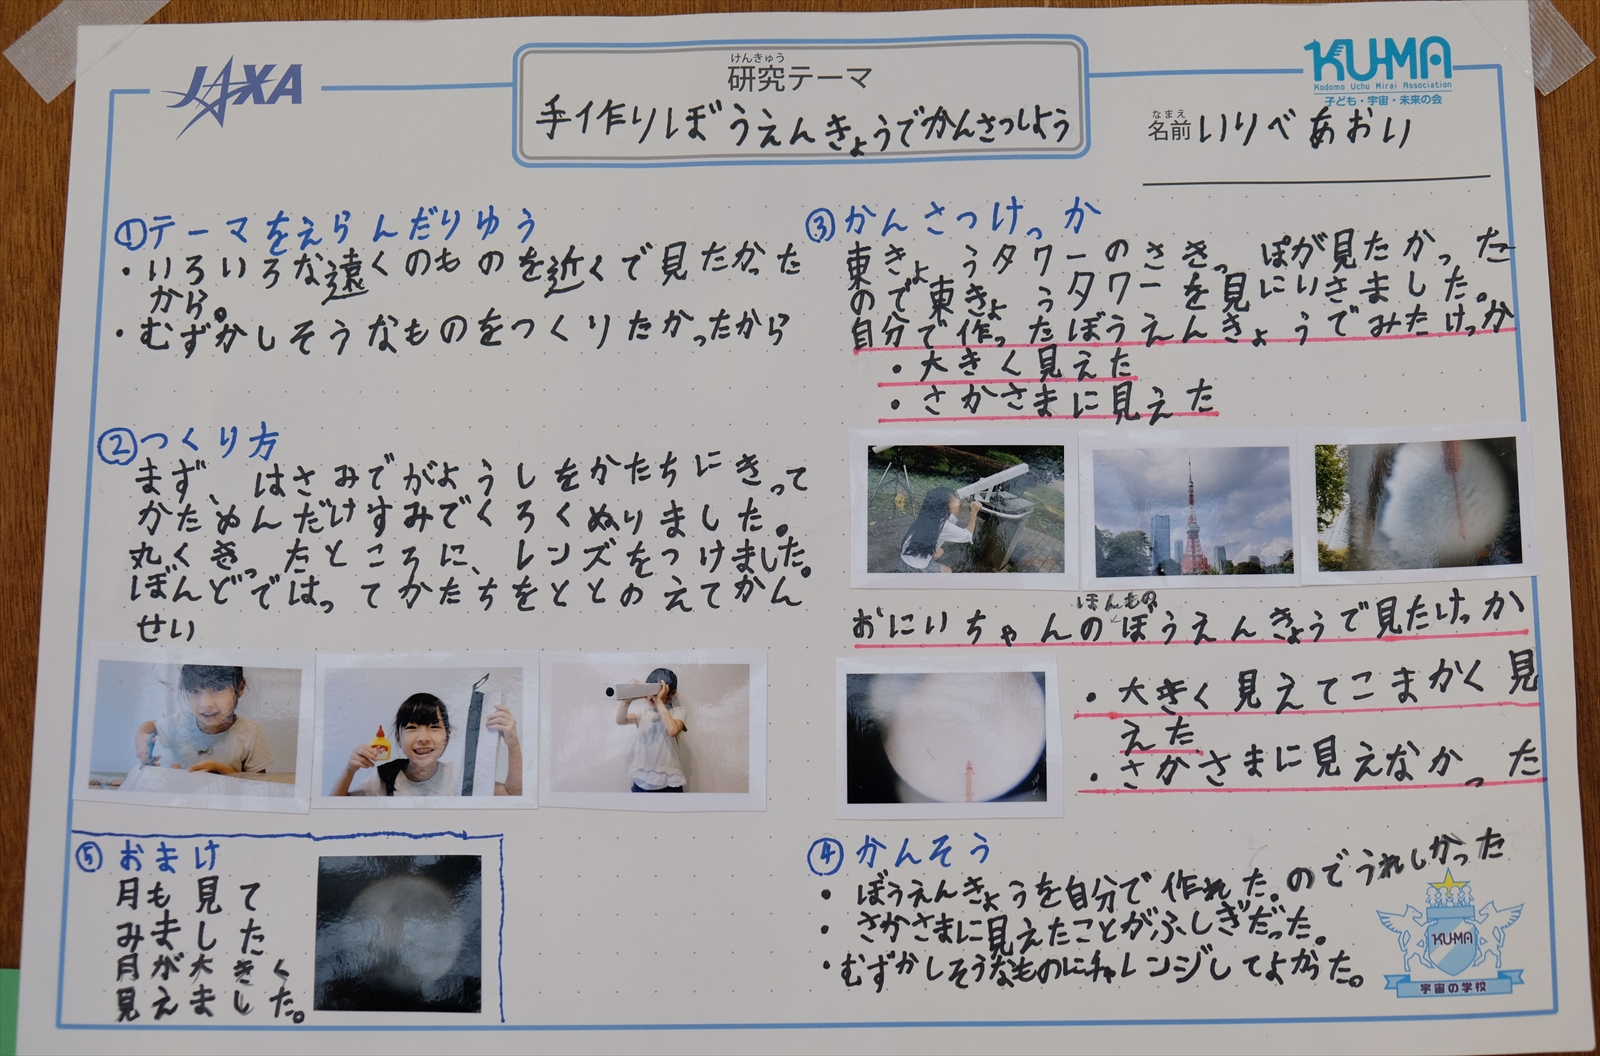 JAXA
けんきゅう
研究テーマ
手作りぼうえんきょうでかんさつしよう
KU-MA
Kodomo Uchu Mirai Association
子ども・宇宙・未来の会
なまえ
名前 いりべ あおい
①テーマをえらんだりゆう
・いろいろな遠くのものを近くで見たかった
から。
・むずかしそうなものをつくりたかったから
②つくり方
まず、はさみでがようしをかたちにきって
かためんだけすみでくろくぬりました。
丸くきったところに、レンズをつけました。
ぼんどではってかたちをととのえてかん
せい
③かんさつけっか
東きょうタワーのさきっぽが見たかった
ので東きょうタワーを見にいきました。
自分で作ったぼうえんきょうでみたけっか
・大きく見えた
・さかさまに見えた
ほんもの
おにいちゃんのぼうえんきょうで見たけっか
・大きく見えてこまかく見
えた
・さかさまに見えなかった
④かんそう
・ぼうえんきょうを自分で作れた。のでうれしかった
・さかさまに見えたことがふしぎだった。
・むずかしそうなものにチャレンジしてよかった。
⑤おまけ
月も見て
みました
月が大きく
見えました。
KU-MA
宇宙の学校